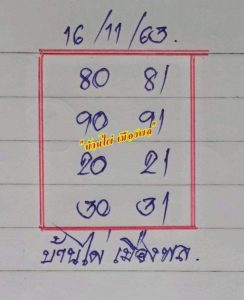 16/11/63.
80 81
90 91
"บ้านไผ่ เมืองพล"
20 21
30 31
บ้านไผ่ เมืองพล.